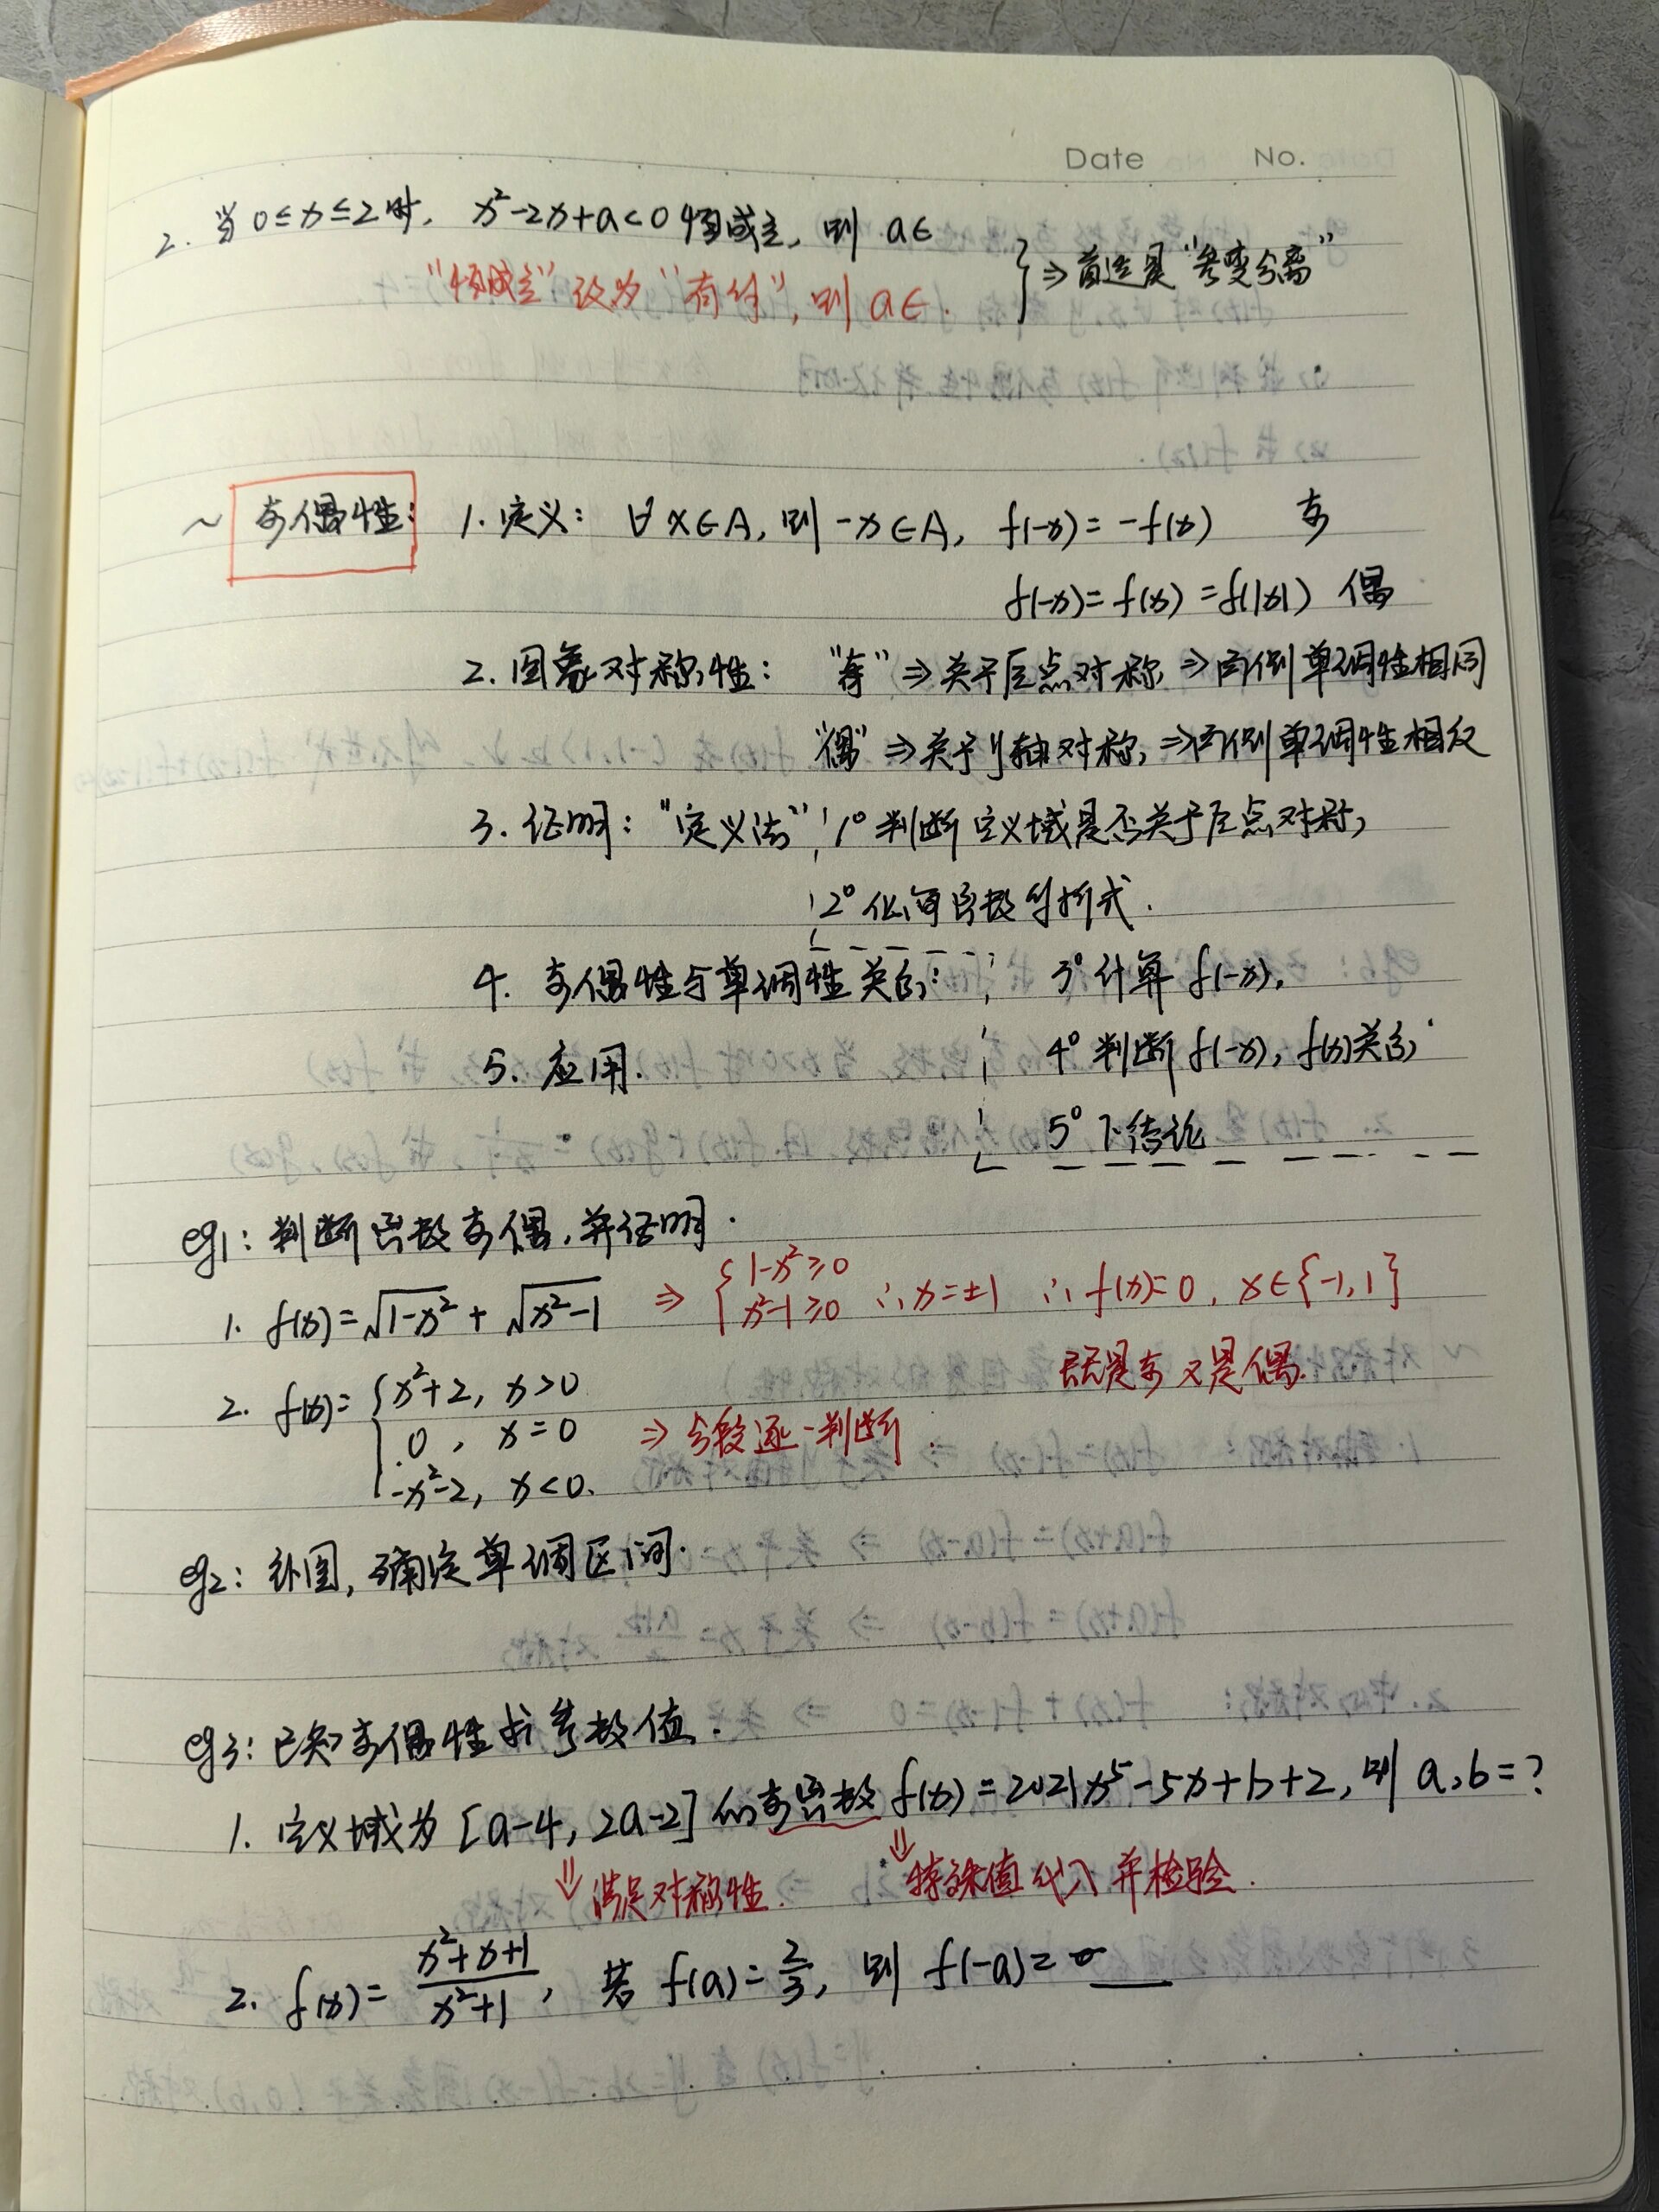 Date No.
2. 当 0≤x≤2时, x²-2x+a<0 恒成立, 则 a∈
"恒成立" 改为 "有解", 则 a∈.
} ⇒ 首选是 "参变分离"
~ 奇偶性: 1. 定义: ∀x∈A, 则 -x∈A, f(-x)=-f(x) 奇
f(-x)=f(x)=f(|x|) 偶
2. 图象对称性: "奇" ⇒ 关于原点对称, ⇒ 两侧单调性相同
"偶" ⇒ 关于y轴对称, ⇒ 两侧单调性相反
3. 证明: "定义法" 1° 判断定义域是否关于原点对称,
2° 化简函数解析式.
4. 奇偶性与单调性关系: 3° 计算 f(-x),
5. 应用. 4° 判断 f(-x), f(x)关系,
5° 下结论
eg1: 判断函数奇偶, 并证明.
1. f(x)=√(1-x²) + √(x²-1) ⇒ { 1-x²≥0 x²-1≥0 ∴ x=±1 ∴ f(x)=0, x∈{-1,1}
既是奇又是偶.
2. f(x)= { x²+2, x>0
0, x=0 ⇒ 分段逐一判断.
-x²-2, x<0.
eg2: 补图, 确定单调区间.
eg3: 已知奇偶性求参数值.
1. 定义域为 [a-4, 2a-2] 的奇函数 f(x)=2021x⁵-5x+b+2, 则 a,b=?
⇓ 满足对称性. ⇓ 特殊值代入并检验.
2. f(x)= (x²+x+1)/(x²+1), 若 f(a)=2/3, 则 f(-a)=